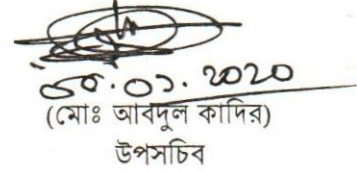 ০১.২০২০
(মোঃ আবদুল কাদির)
উপসচিব